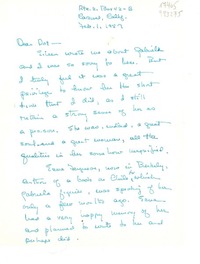 Rte. 2, Box 42-B
Carmel, Calif.
Feb. 1, 1957
Dear Dot —
Eileen wrote me about Gabriela
and I was so sorry to hear. But
I truly feel it was a great
privilege to know her the short
time that I did, as I still
retain a strong sense of her as
a person. She was, indeed, a great
soul and a great woman, all the
qualities in her somehow magnified.
in Berkeley,
author of a book on Chile in which
Gabriela figures, was speaking of her
only a few months ago.
had a very happy memory of her
and planned to write to her and
perhaps did.